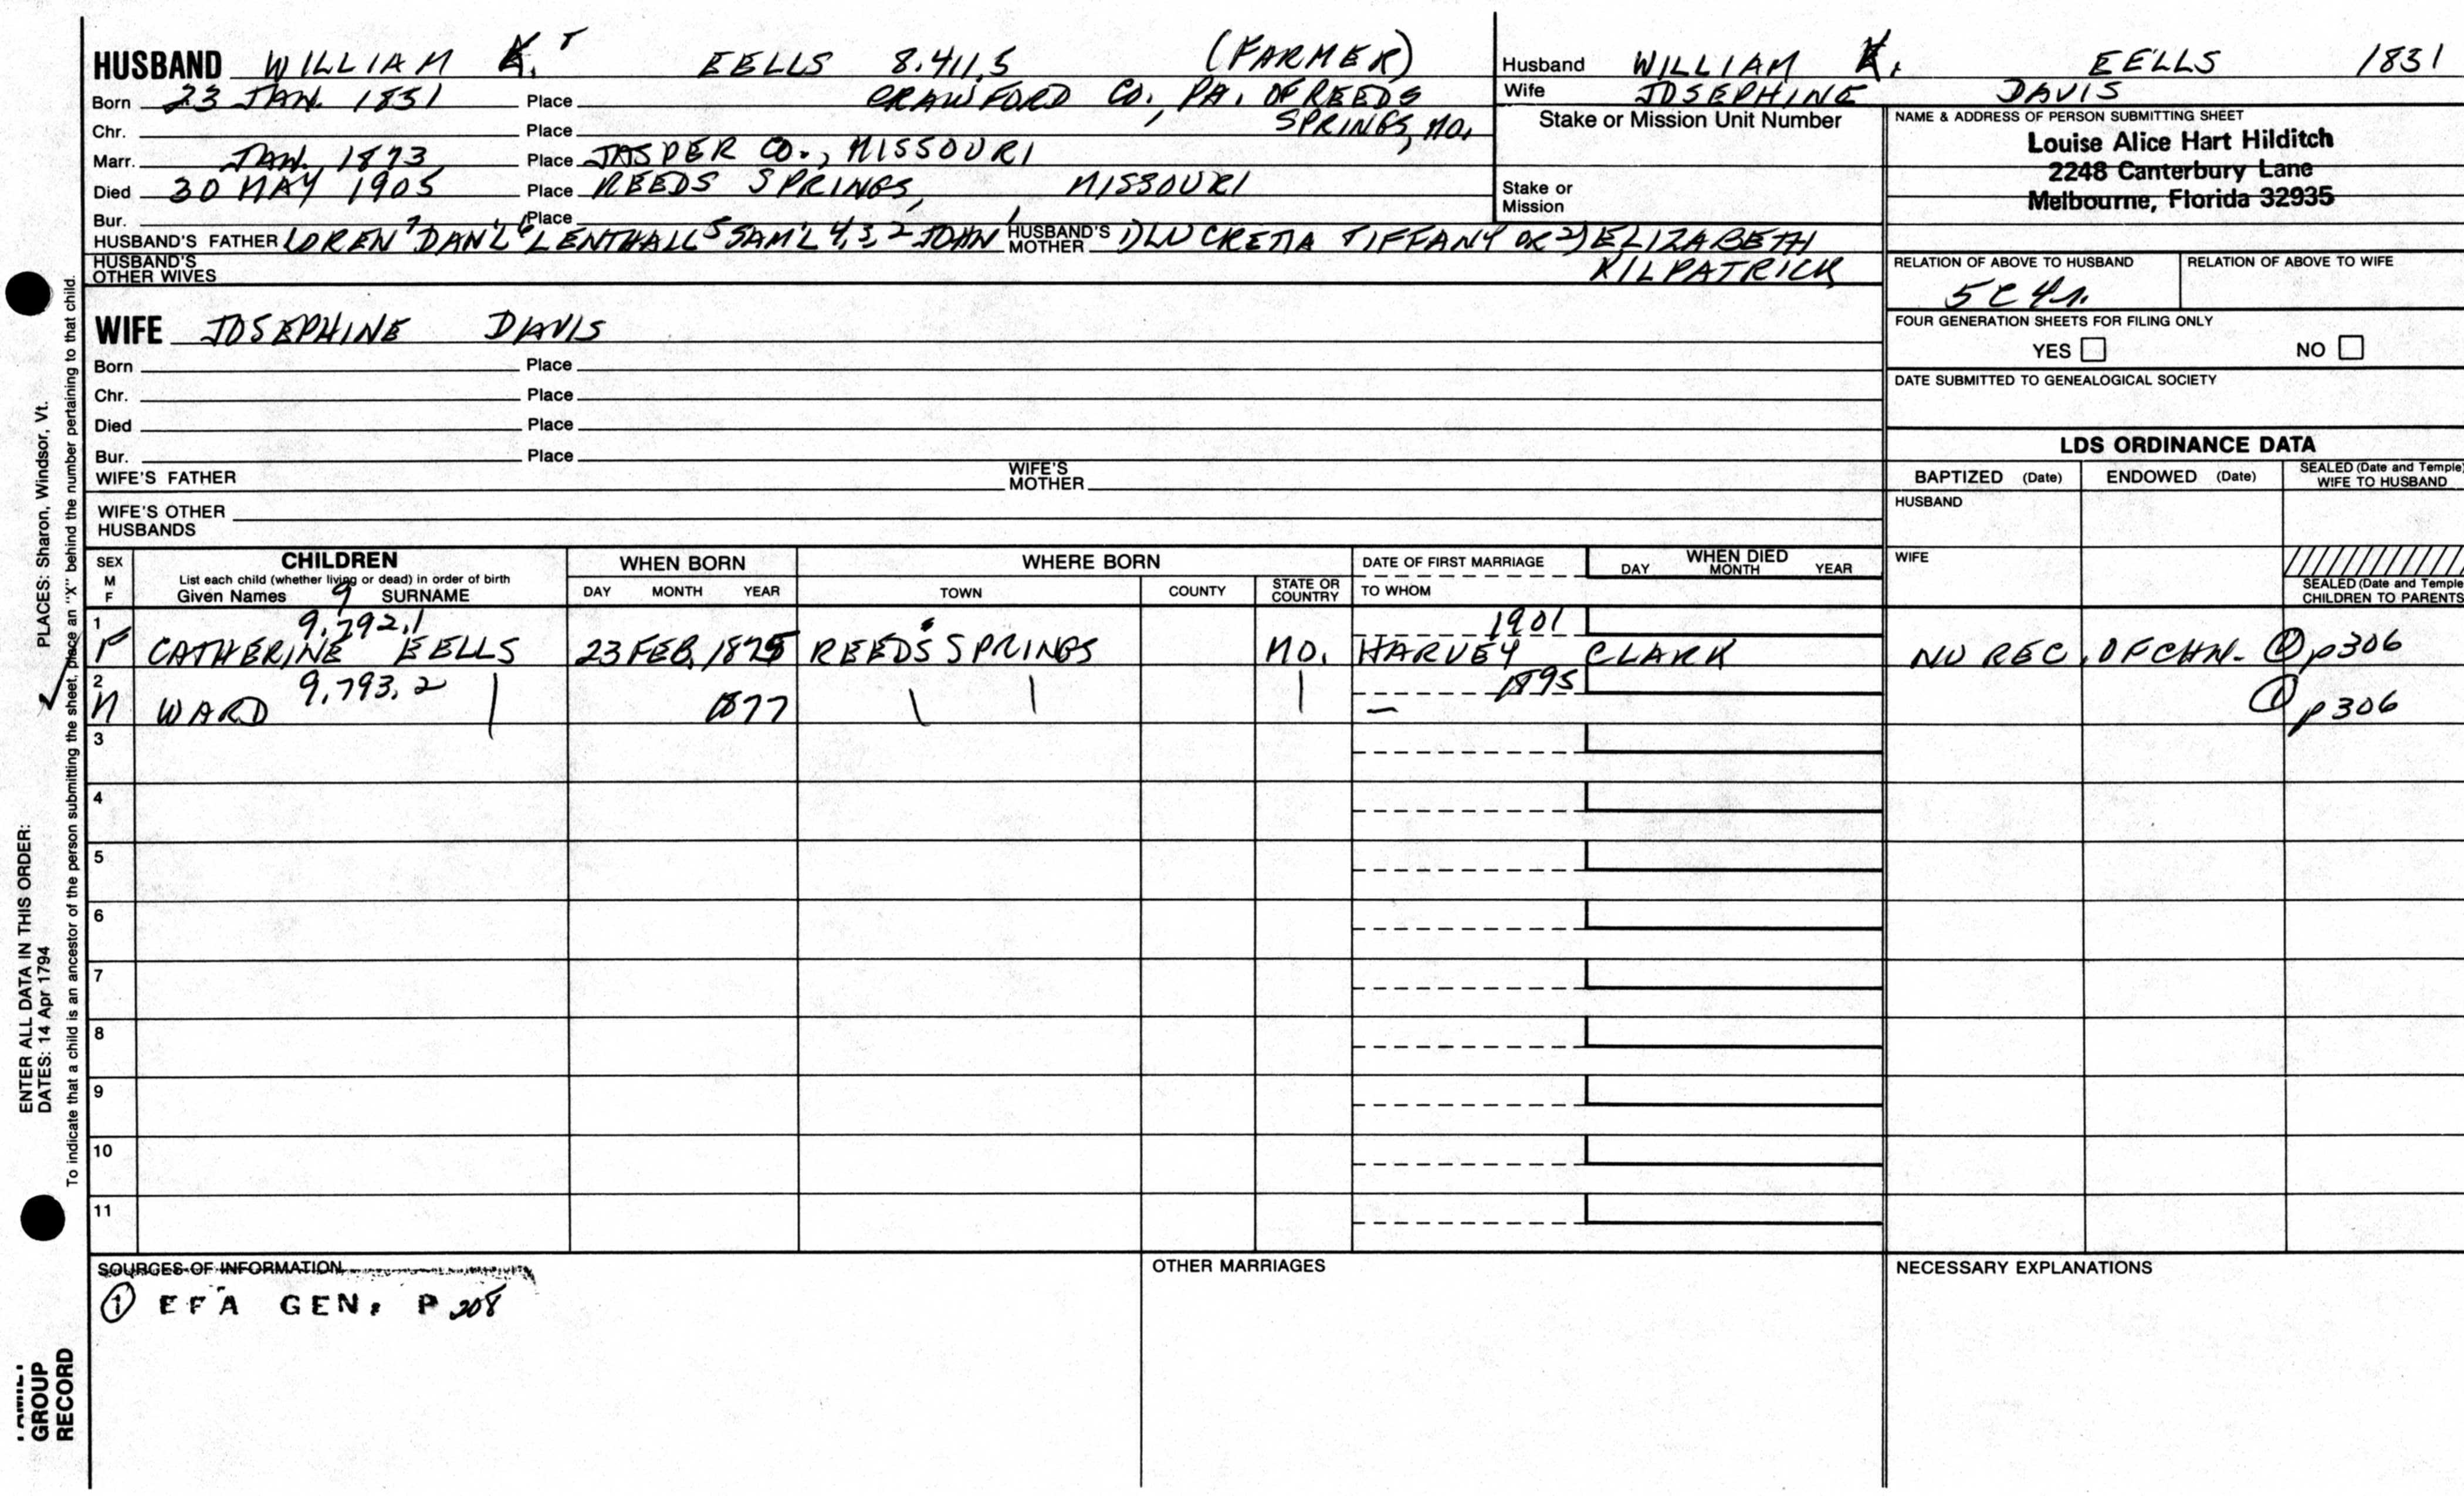 HUSBAND WILLIAM K. T EELLS 8.411.5 (FARMER)
Born 23 JAN. 1831 Place CRAWFORD CO., PA. OF REEDS
Chr. Place SPRINGS, MO.
Marr. JAN. 1873 Place JASPER CO., MISSOURI
Died 30 MAY 1905 Place REEDS SPRINGS, MISSOURI
Bur. Place
HUSBAND'S FATHER LOREN 7 DAN'L 6 LENTHALL 5 SAM'L 4, 3, 2 JOHN 1 HUSBAND'S MOTHER 1) LUCRETIA TIFFANY OR 2) ELIZABETH
HUSBAND'S OTHER WIVES KILPATRICK
WIFE JOSEPHINE DAVIS
Born Place
Chr. Place
Died Place
Bur. Place
WIFE'S FATHER WIFE'S MOTHER
WIFE'S OTHER HUSBANDS
Husband WILLIAM K. EELLS 1831
Wife JOSEPHINE DAVIS
Stake or Mission Unit Number
Stake or Mission
NAME & ADDRESS OF PERSON SUBMITTING SHEET
Louise Alice Hart Hilditch
2248 Canterbury Lane
Melbourne, Florida 32935
RELATION OF ABOVE TO HUSBAND RELATION OF ABOVE TO WIFE
5C4r.
FOUR GENERATION SHEETS FOR FILING ONLY
YES NO
DATE SUBMITTED TO GENEALOGICAL SOCIETY
LDS ORDINANCE DATA
BAPTIZED (Date) ENDOWED (Date) SEALED (Date and Temple) WIFE TO HUSBAND
HUSBAND
WIFE
SEALED (Date and Temple
CHILDREN TO PARENTS
SEX M F
CHILDREN
List each child (whether living or dead) in order of birth
Given Names 9 SURNAME
WHEN BORN
DAY MONTH YEAR
WHERE BORN
TOWN COUNTY STATE OR COUNTRY
DATE OF FIRST MARRIAGE
TO WHOM
WHEN DIED
DAY MONTH YEAR
1 9,792,1 1901
F CATHERINE EELLS 23 FEB. 1875 REEDS SPRINGS MO. HARVEY CLARK NO REC. OF CHN. ① p306
2 9,793,2 1895
M WARD 1877 — ① p306
3
4
5
6
7
8
9
10
11
SOURCES OF INFORMATION
① EFA GEN. P 208
OTHER MARRIAGES
NECESSARY EXPLANATIONS
ENTER ALL DATA IN THIS ORDER:
DATES: 14 Apr 1794 PLACES: Sharon, Windsor, Vt.
To indicate that a child is an ancestor of the person submitting the sheet, place an "X" behind the number pertaining to that child.
GROUP
RECORD